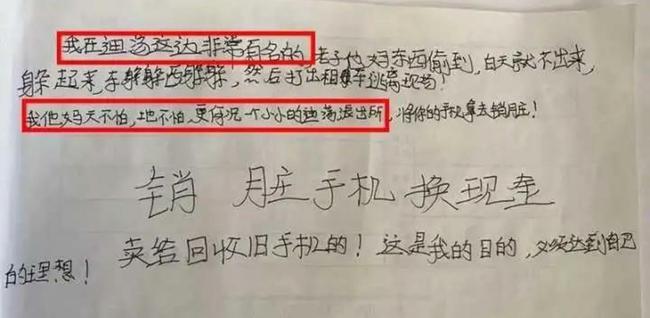 我在迪荡这边非常有名的，老子他妈东西偷到，白天就不出来，
躲起来，东躲躲西躲躲，然后打出租车逃离现场！
我他妈天不怕，地不怕，更何况一个小小的迪荡派出所，将你的手机拿去销脏！
销 脏手机 换现金
卖给回收旧手机的！这是我的目的，必须达到自己
的理想！